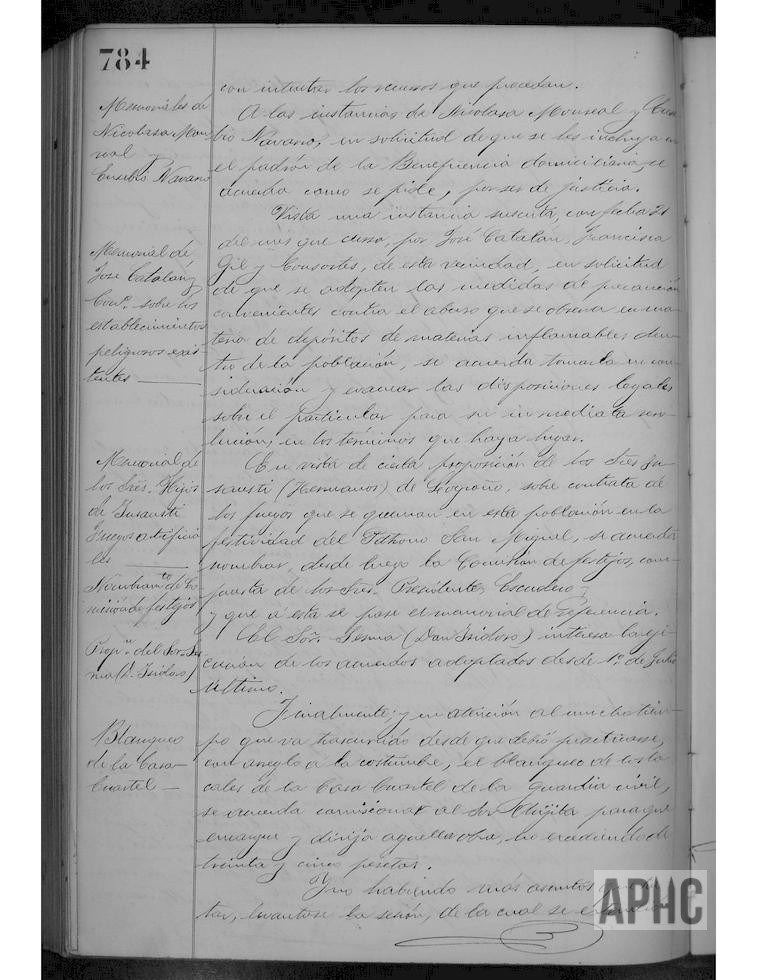 784
con intentar los recursos que procedan.
Memoriales de
Nicolasa Mon
real y
Eusebio Navarro
A las instancias de Nicolasa Monreal y Euse
bio Navarro, en solicitud de que se les incluya en
el padrón de la Beneficencia domiciliaria, se
acuerda como se pide, por ser de justicia.
Memorial de
José Catalán y
Con.s sobre los
establecimientos
peligrosos exis
tentes
Vista una instancia suscrita, con fecha 21
del mes que cursa, por José Catalán, Francisca
Gil y Consortes, de esta vecindad, en solicitud
de que se adopten las medidas de precaución
convenientes contra el abuso que se observa en ma
teria de depósitos de materias inflamables den
tro de la población, se acuerda tomarla en con
sideración y evacuar las disposiciones legales
sobre el particular para su inmediata reso
lución, en los términos que haya lugar.
Memorial de
los Sres. Hijos
de Insausti
Fuegos artificia
les
En vista de cierta proposición de los Sres In
sausti (Hermanos) de Logroño, sobre contrata de
los fuegos que se queman en esta población en la
festividad del Patrono San Miguel, se acuerda
nombrar, desde luego la Comisión de festejos, com
puesta de los Sres. Presidente, Escudero,
y que á esta se pase el memorial de referencia.
Nombram.to de Co
misión de festejos
Prop.n del Sor. Ses
ma (D. Isidoro)
El Sor. Sesma (Don Isidoro) interesa la eje
cución de los acuerdos adoptados desde 1º de Julio
último.
Blanqueo
de la Casa
Cuartel
Finalmente; y en atención al mucho tiem
po que va trascurrido desde que debió practicarse,
con arreglo á la costumbre, el blanqueo de los lo
cales de la Casa Cuartel de la Guardia civil,
se acuerda comisionar al Sor. para que
encargue y dirija aquella obra, no excediendo de
treinta y cinco pesetas.
Y no habiendo más asuntos que tra
tar, levantose la sesión, de la cual se extiende
APHC